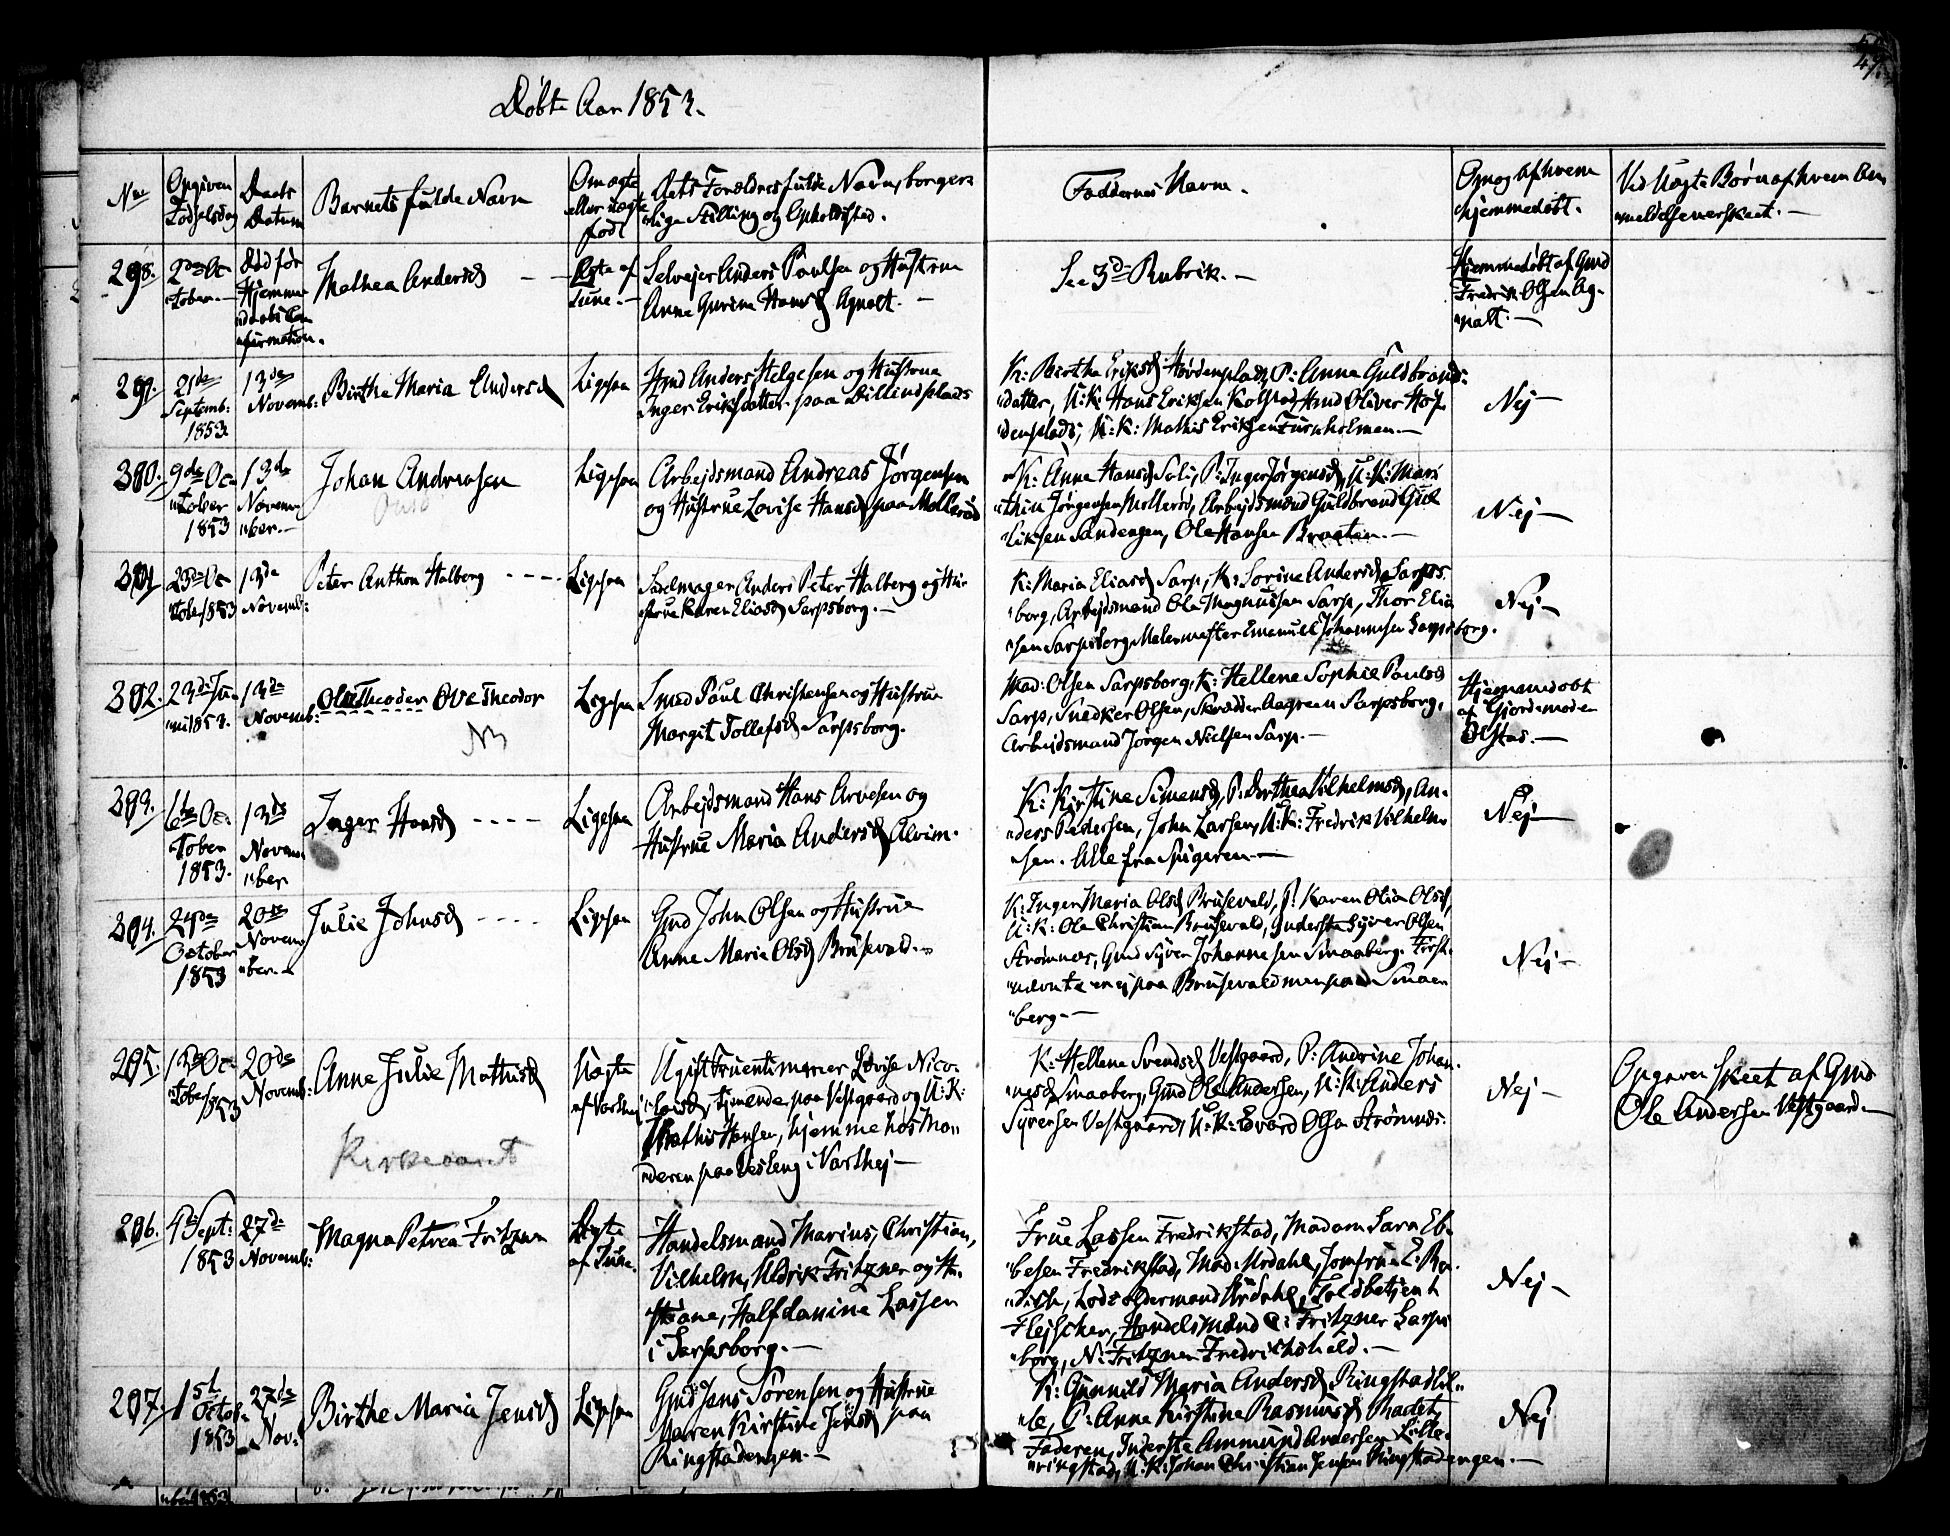 Døbte Aar 1853.
No
Opgiven
Fødselsdag
Daabs
Datum
Barnets fulde Navn
Om ægte
eller uægte
født
Dets Forældres fulde Navn, borger-
lige Stilling og Opholdsted.
Faddernes Navn.
Om og af hvem
hjemmedøbt.
Ved Uægte Børn af hvem An-
meldelsen er skeet. —
298.
2den Oc-
tober. —
Død før
Hjemme-
daabs Con-
firmation.
Mathea Andersd
Ægte af
Tune. —
Selvejer Anders Paulsen og Hustrue
Anne Gurine Hansd Agnalt. —
See 3die Rubrik. —
Hjemmedøbt af Gmd
Fredrik Olsen Ag-
nalt. —
299.
21de
Septemb:
1853.
13de
Novemb:
Birthe Maria Andersd
Ligesaa
Hmd Anders Helgesen og Hustrue
Inger Eriksdatter paa
K: Birthe Eriksd P: Anna Guldbrands-
datter, U: K: Hans Eriksen Kolstad, Hmd Oliver
U: K: Mathis Eriksen Tuneholmen. —
Nej —
300.
9de Oc-
tober
1853
13de
Novem-
ber. —
Johan Andreasen
Ligesaa
Arbejdsmand Andreas Jørgensen
og Hustrue Lovise Hansd paa Møllerød
K: Anne Hansd Soli, P: Inger Jørgensd, U: K: Mar-
thin Jørgensen Møllerød, Arbejdsmand Guldbrand Gul-
liksen Sandengen, Ole Hansen Braaten. —
Nej —
301
23de Oc-
tober 1853
13de
Novemb:
Peter Anthon Halberg
Ligesaa
Sadelmager Anders Peter Halberg og Hu-
strue Karen Eliasd Sarpsborg. —
K: Maria Eliasd Sarp, K: Sorine Andersd Sarps-
borg, Arbejdsmand Ole Magnussen Sarp, Thor Elia-
sen Sarpsborg, Malermester Emanuel Johannesen Sarpsborg.
Nej —
302.
23de Ju-
ni 1853.
13de
Novemb:
Ole Theodor Ove Theodor
Ligesaa
Smed Paul Christensen og Hustrue
Margit Tollefsd Sarpsborg.
Mad: Olsen Sarpsborg, K: Hellene Sophie Paulsd
Sarp, Snedker Olsen, Skrædder Aagreen Sarpsborg,
Arbejdsmand Jørgen Nielsen Sarp. —
Hjemmedøbt
af Gjordemoder
Ølstad. —
303.
16de Oc-
tober
1853.
13de
Novem-
ber
Inger Hansd
Ligesaa
Arbejdsmand Hans Arvesen og
Hustrue Maria Andersd Alvim.
K: Kirstine Simensd, P: Dorthea Vilhelmsd, An-
ders Pedersen, John Larsen, U: K: Fredrik Vilhelm-
sen. Alle fra Spigeren —
Nej —
304.
24de
October
1853
20de
Novem-
ber. —
Julie Johnsd
Ligesaa
Gmd John Olsen og Hustrue
Anne Marie Olsd Brusevold. —
K: Inger Maria Olsd Brusevold, P: Karen Olia Olsd,
U: K: Ole Christian Brusevold, Inderste Syver Olsen
Strømnes, Gmd Syver Johannesen Smaaberg. Først-
nævnte er ej paa Brusevold men paa Smaa-
berg. —
Nej —
205.
tober 1853
20de
Novemb:
Anne Julie Mathisd
Uægte
af Varthej
Ugift Fruentimmer Lovise Nico-
laisd, tjenende paa Vestgaard og U: K:
Mathis Hansen, hjemme hos Mo-
deren paa Vesteng i Varthej —
K: Hellene Svendsd Vestgaard, P: Andrine Johan-
nesd Smaaberg, Gmd Ole Andersen, U: K: Anders
Syversen Vestgaard, U: K: Edvard Olsen Strømnes.
Nej —
Opgaven skeet af Gmd
Ole Andersen Vestgaard. —
206.
Sept:
1853
27de
Novemb:
Magna Petrea Fritzner
Ægte
af Tune.
Handelsmand Marius, Christian,
Vilhelm, Uldrik Fritzner og Hu-
strue, Halfdanine Lassen
i Sarpsborg. —
Frue Lassen Fredrikstad, Madam Sara Eb-
besen Fredrikstad, Mad: Urdahl, Jomfrue
Lodsoldermand Urdahl, Toldbetjent
Flejscher, Handelsmand C: Fritzner Sarps-
borg, N: Fritzner Fredrikshald. —
Nej —
207.
15de
Octob.
1853
27de
Nov:
Birthe Maria Jensd
Ligesaa
Gmd Jens Sørensen og Hustrue
Maren Kirstine Jensd paa
Ringstadengen. —
K: Gunnild Maria Andersd Ringstadlil-
le, P: Anne Kirstine Rasmusd
Faderen, Inderste Ammund Andersen Lille-
ringstad, U: K: Johan Christian Jensen Ringstadengen. —
Nej